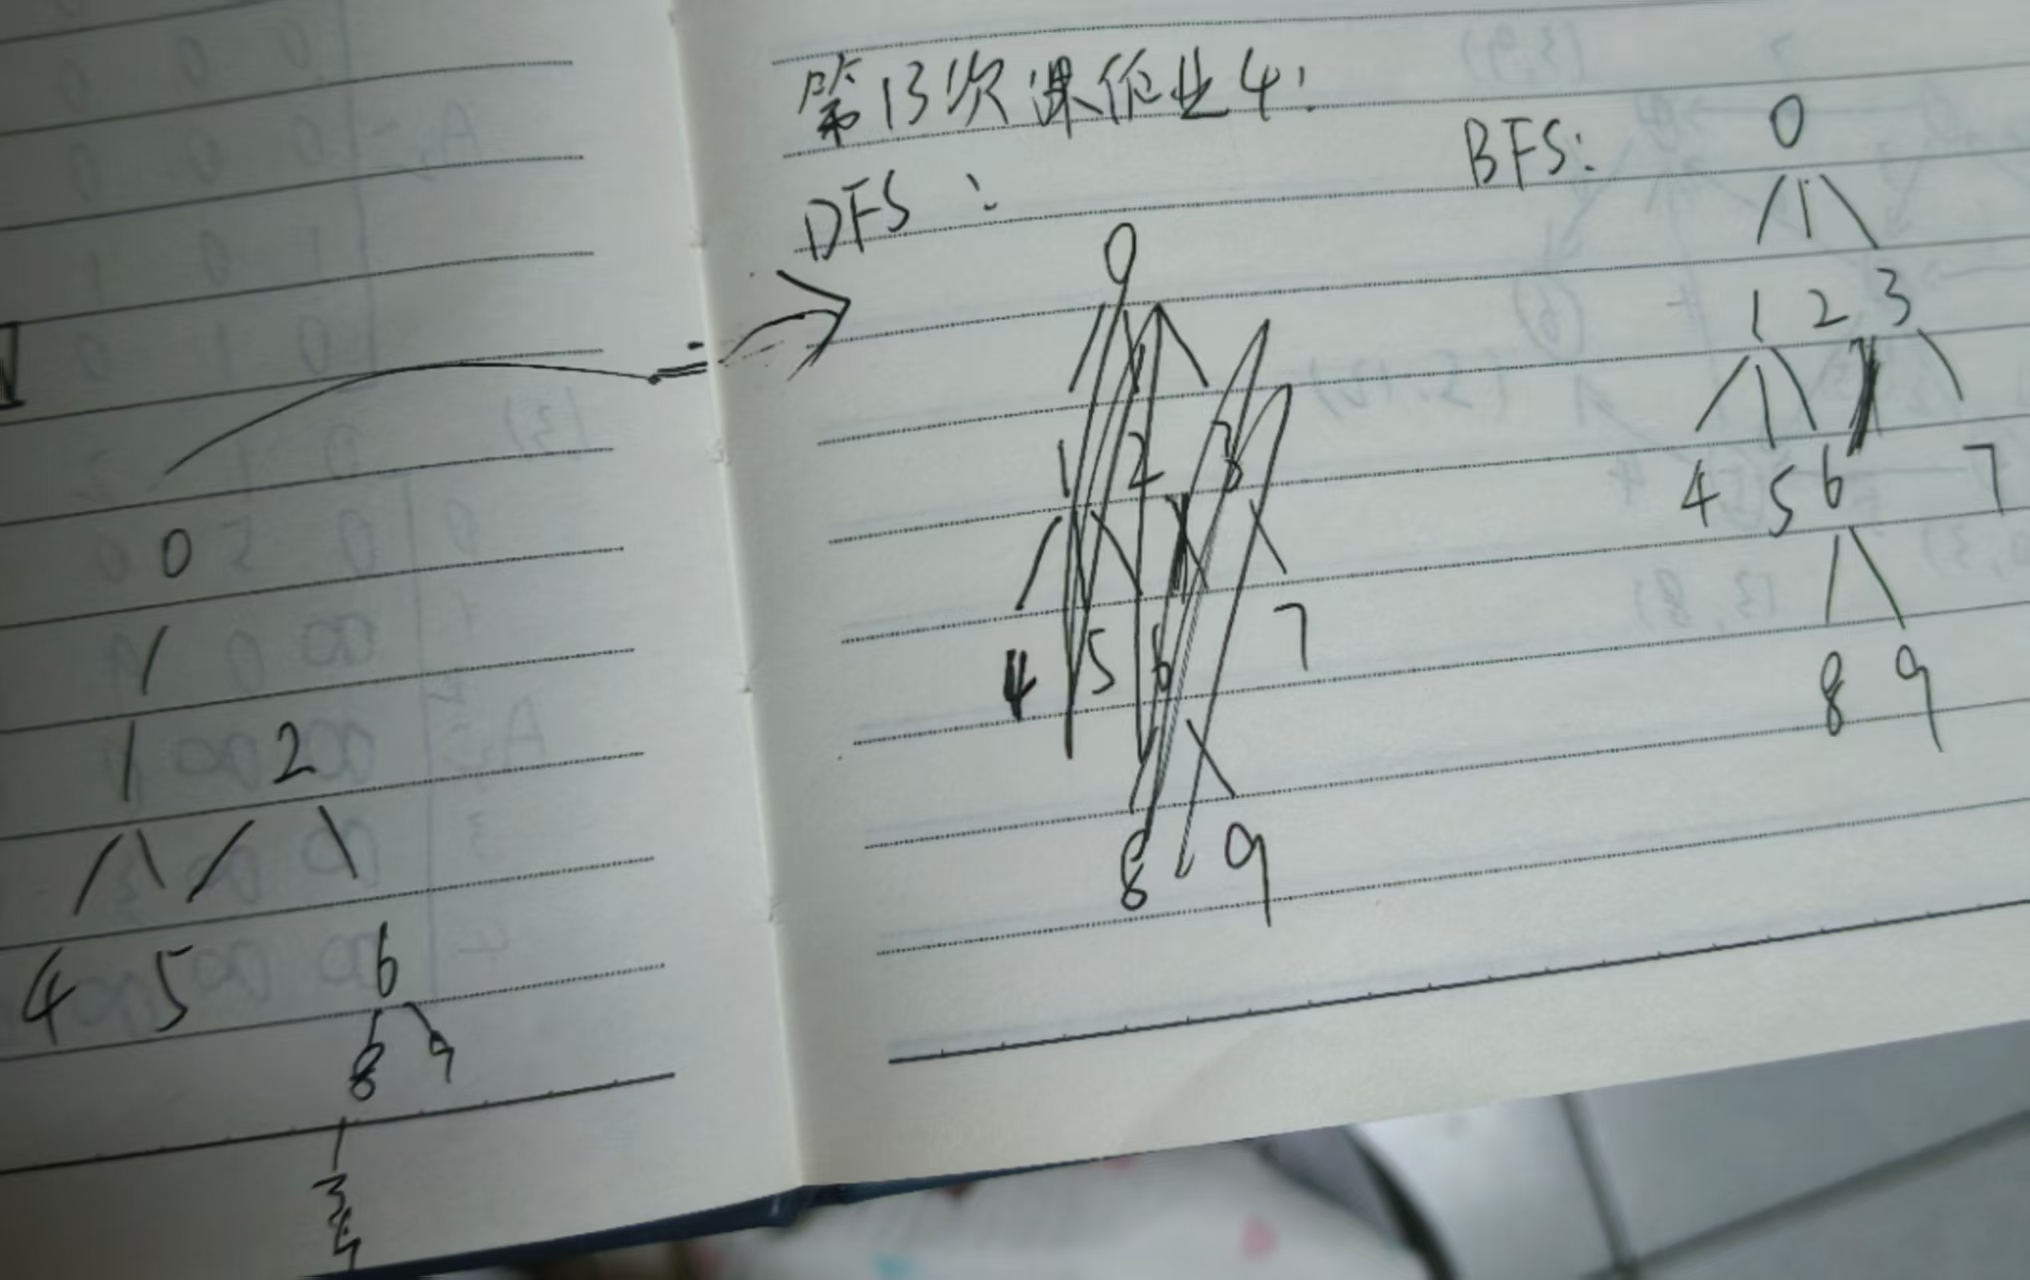 第13次课作业4:
DFS:
0
1 2 3
4 5 6 7
8 9
BFS:
0
1 2 3
4 5 6 7
8 9
0
1 2
4 5 6
8 9
3
7